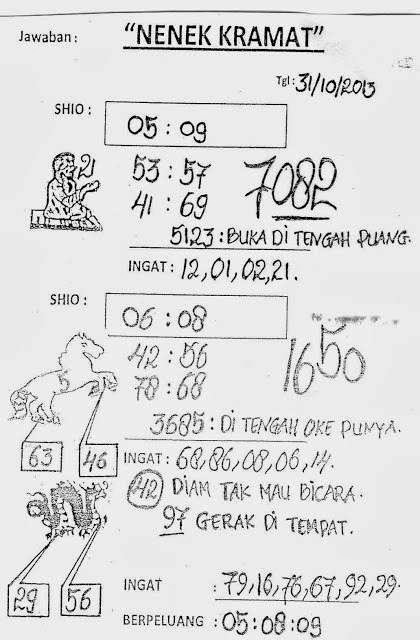 Jawaban : "NENEK KRAMAT"
Tgl : 31/10/2013
SHIO : 05 : 09
21
53 : 57
41 : 69
7082
5123 : BUKA DI TENGAH PUANG.
INGAT : 12,01,02,21.
SHIO : 06 : 08
42 : 56
78 : 68
1650
5
3685 : DI TENGAH OKE PUNYA.
63 46
INGAT : 68,86,08,06,14.
42 DIAM TAK MAU BICARA.
97 GERAK DI TEMPAT.
29 56
INGAT : 79,16,76,67,92,29.
BERPELUANG : 05:08:09